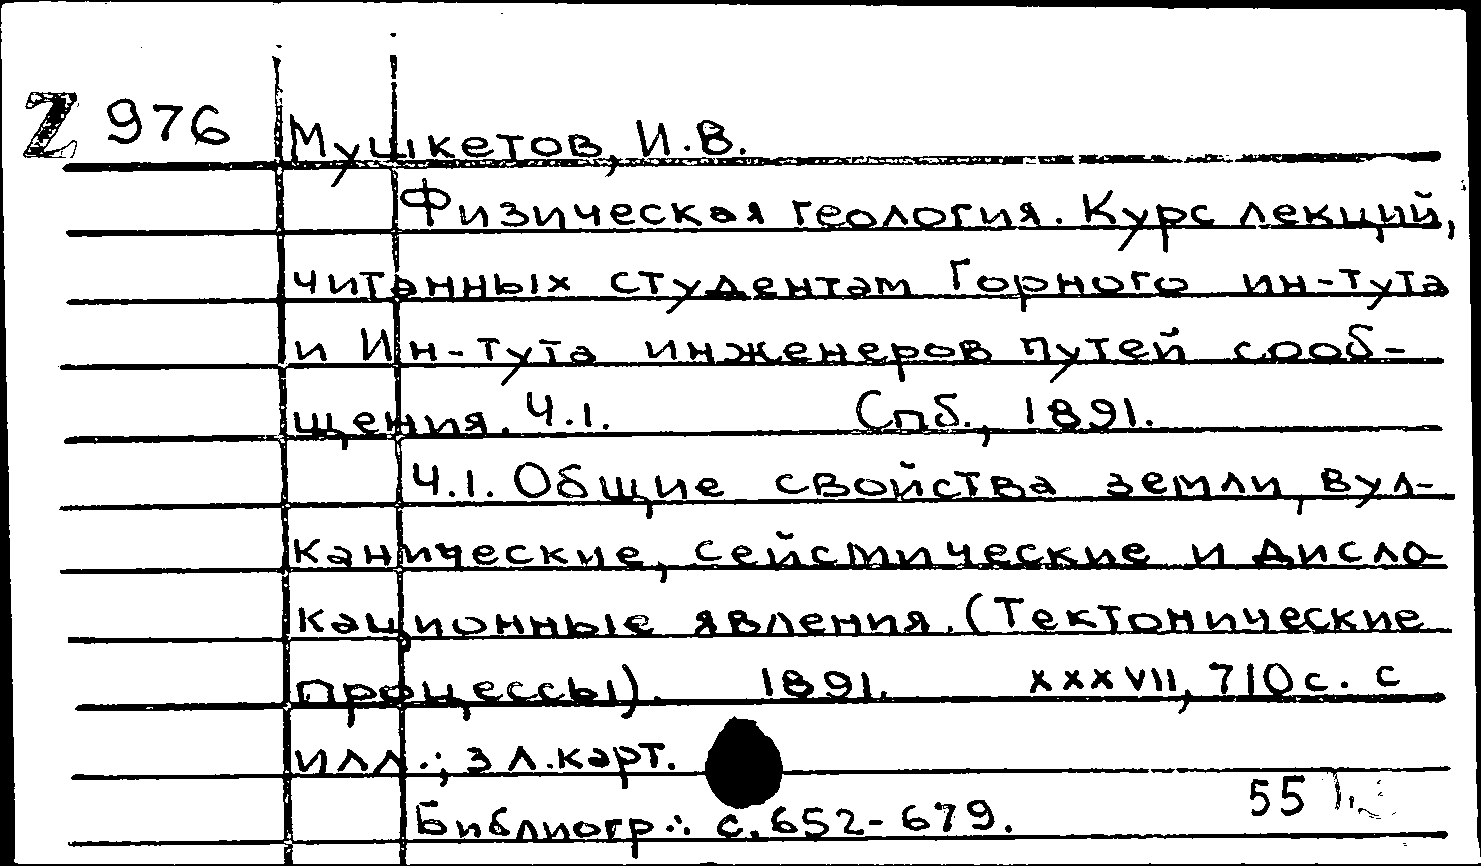 Z 976 Мушкетов, И.В.
Физическая геология. Курс лекций,
читанных студентам Горного ин-тута
и Ин-тута инженеров путей сооб-
щения. Ч.1. Спб., 1891.
Ч.1. Общие свойства земли, вул-
канические, сейсмические и дисло-
кационные явления. (Тектонические
процессы). 1891. XXXVII, 710 с. с
илл.; 3 л. карт.
55
Библиогр.: с. 652-679.